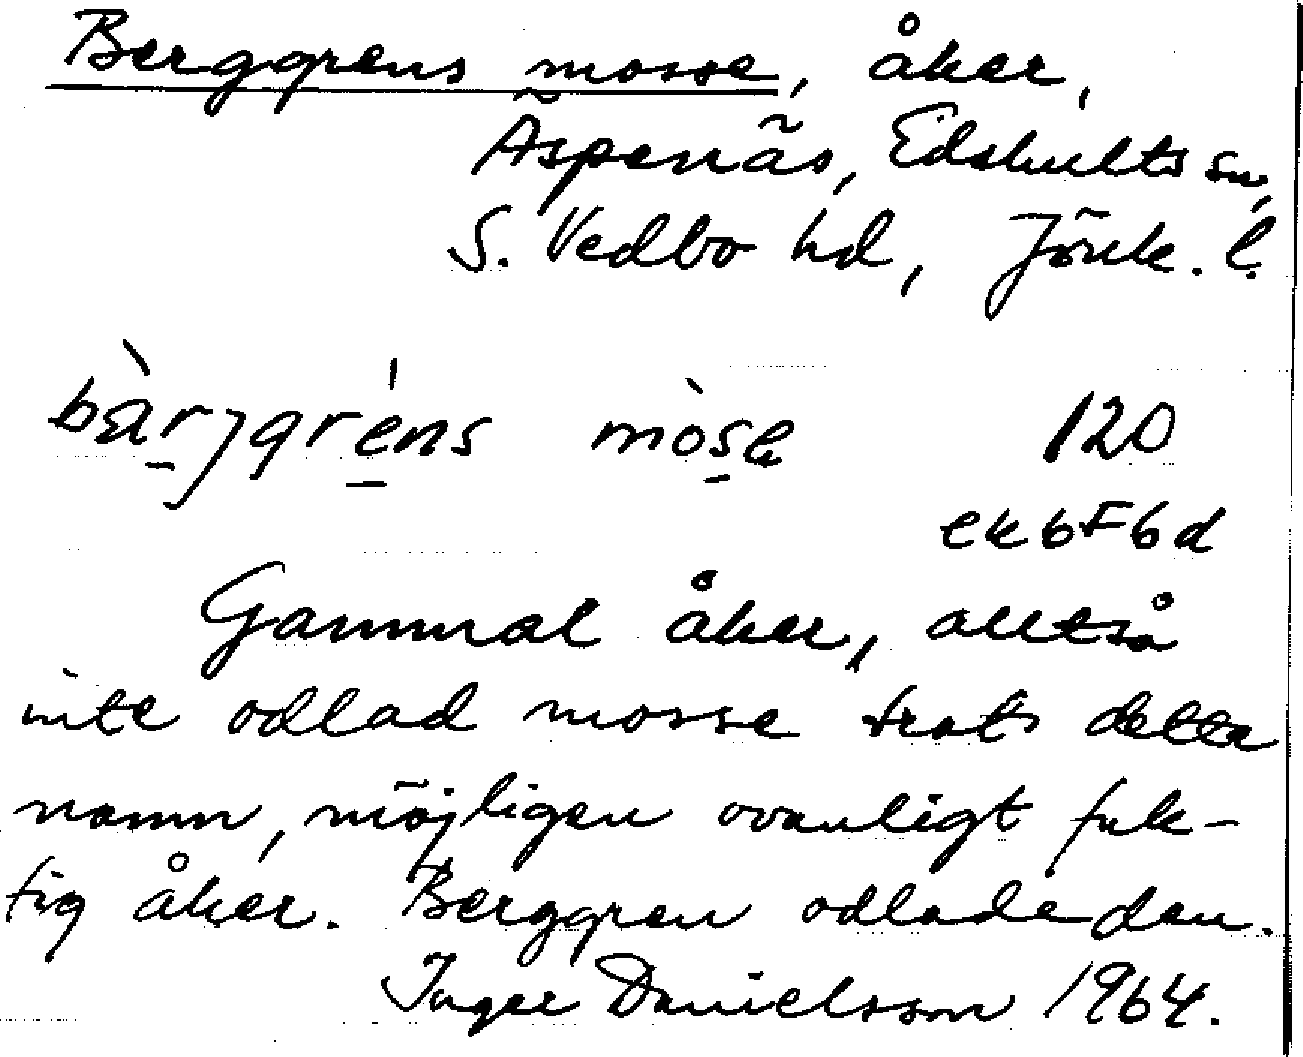 Berggrens mosse, åker,
Äspenäs, Edshults sn,
S. Vedbo hd, Jönk. l.
bàrjgréns mòse 120
ek6F6d
Gammal åker, alltså
inte odlad mosse trots detta
namn, möjligen ovanligt fuk-
tig åker. Berggren odlade den.
Inger Danielsson 1964.